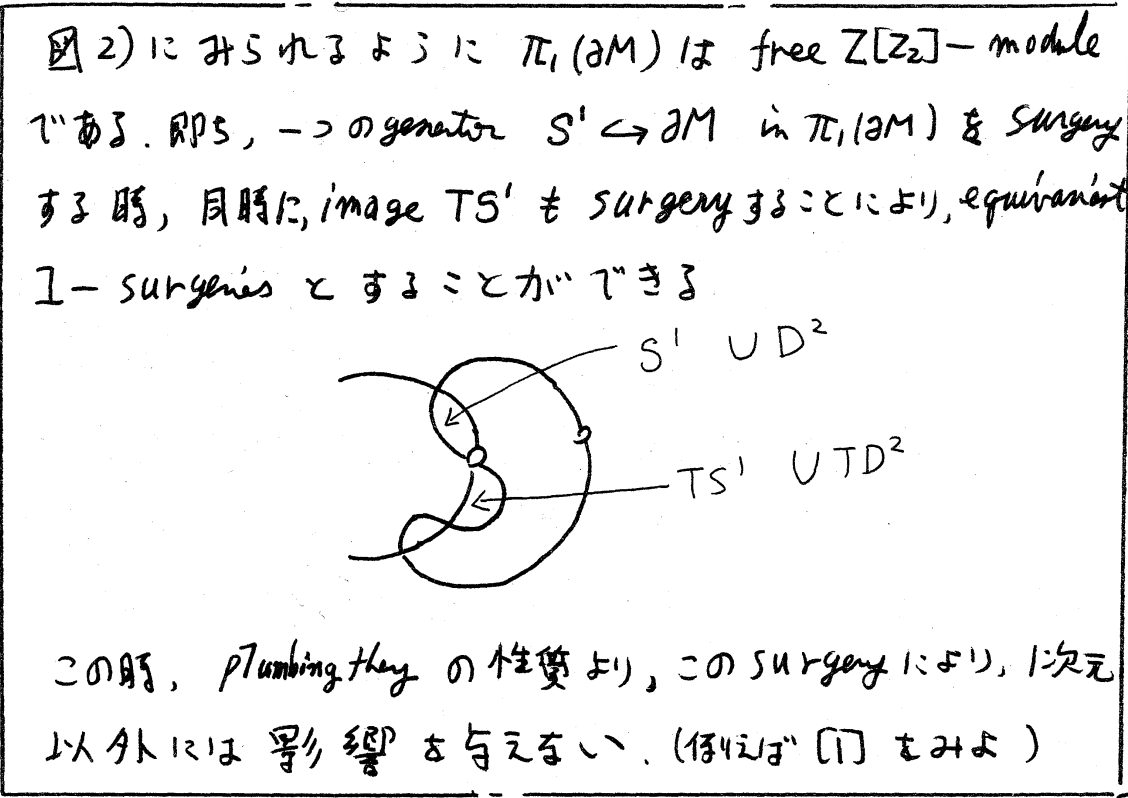 図2)にみられるように π₁(∂M) は free Z[Z₂]-module
である. 即ち, 一つのgenertor S¹ ↪ ∂M in π₁(∂M) を surgery
する時, 同時に, image TS¹ も surgeryすることにより, equivariant
1-surgeries とすることができる
S¹ ∪ D²
TS¹ ∪ TD²
この時, plumbing thery の性質より, このsurgeryにより, 1次元
以外には影響を与えない. (例えば [1] をみよ)